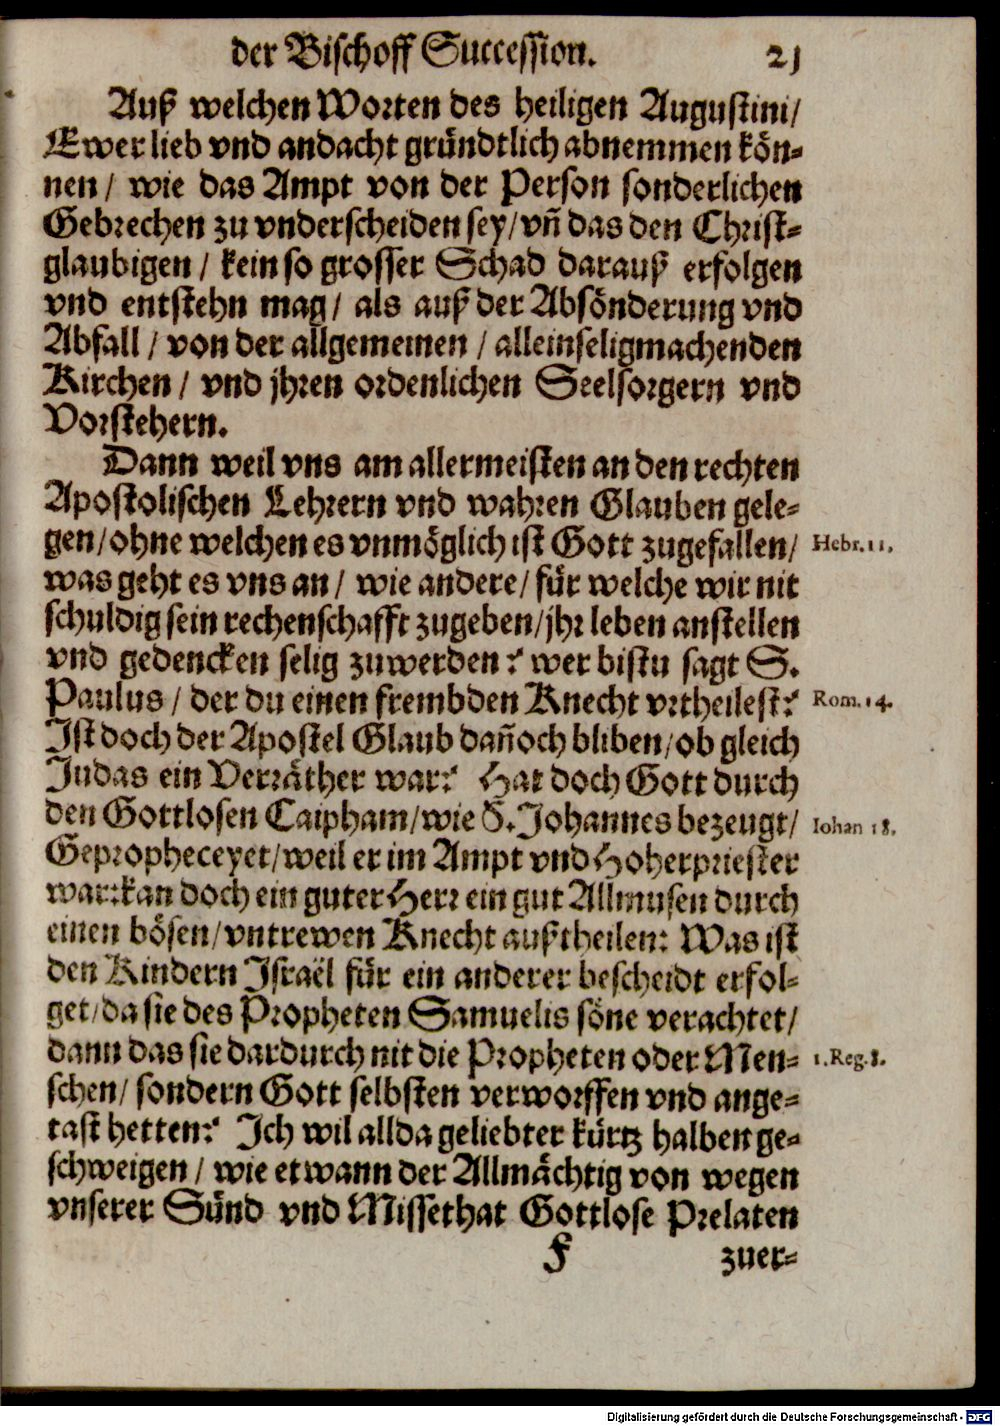 der Bischoff Succession. 21
Auß welchen Worten des heiligen Augustini/
Ewer lieb vnd andacht gründtlich abnemmen kön⸗
nen/ wie das Ampt von der Person sonderlichen
Gebrechen zu vnderscheiden sey/ vñ das den Christ⸗
glaubigen/ kein so grosser Schad darauß erfolgen
vnd entstehn mag/ als auß der Absönderung vnd
Abfall/ von der allgemeinen/ alleinseligmachenden
Kirchen/ vnd jhren ordenlichen Seelsorgern vnd
Vorstehern.
Dann weil vns am allermeisten an den rechten
Apostolischen Lehrern vnd wahren Glauben gele⸗
gen/ ohne welchen es vnmöglich ist Gott zugefallen/ Hebr. 11.
was geht es vns an/ wie andere/ für welche wir nit
schuldig sein rechenschafft zugeben/ jhr leben anstellen
vnd gedencken selig zuwerden? wer bistu sagt S.
Paulus/ der du einen frembden Knecht vrtheilest? Rom. 14.
Ist doch der Apostel Glaub dañoch bliben/ ob gleich
Judas ein Verräther war? Hat doch Gott durch
den Gottlosen Caipham/ wie S. Johannes bezeugt/ Iohan 18.
Gepropheceyet/ weil er im Ampt vnd Hoherpriester
war: kan doch ein guter Herr ein gut Allmusen durch
einen bösen/ vntrewen Knecht außtheilen: Was ist
den Kindern Israël für ein anderer bescheidt erfol⸗
get/ da sie des Propheten Samuelis söne verachtet/
dann das sie dardurch nit die Propheten oder Men⸗ 1. Reg. 8.
schen/ sondern Gott selbsten verworffen vnd ange⸗
tast hetten? Ich wil allda geliebter kürtz halben ge⸗
schweigen/ wie etwann der Allmächtig von wegen
vnserer Sünd vnd Missethat Gottlose Prelaten
F zuer⸗
Digitalisierung gefördert durch die Deutsche Forschungsgemeinschaft - DFG